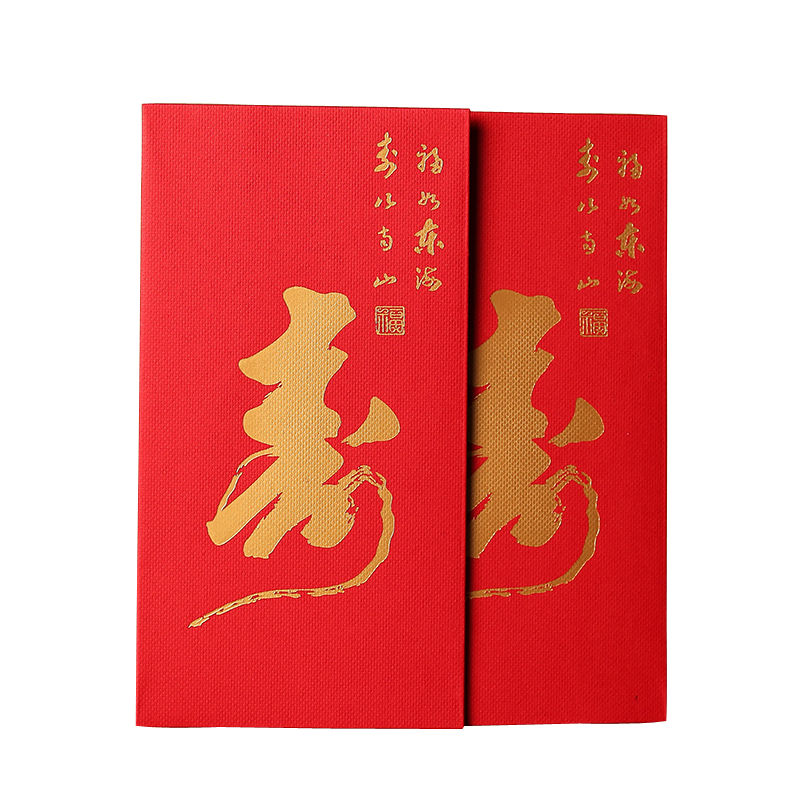 福如东海
寿比南山
福
寿
福如东海
寿比南山
福
寿